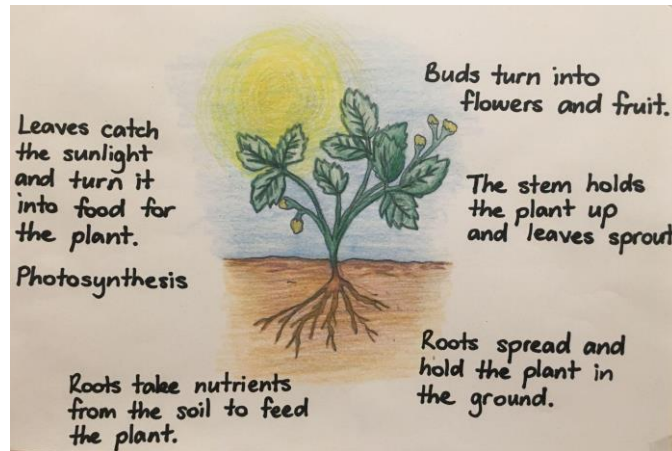 Leaves catch
the sunlight
and turn it
into food for
the plant.
Photosynthesis
Buds turn into
flowers and fruit.
The stem holds
the plant up
and leaves sprout
Roots spread and
hold the plant in
the ground.
Roots take nutrients
from the soil to feed
the plant.